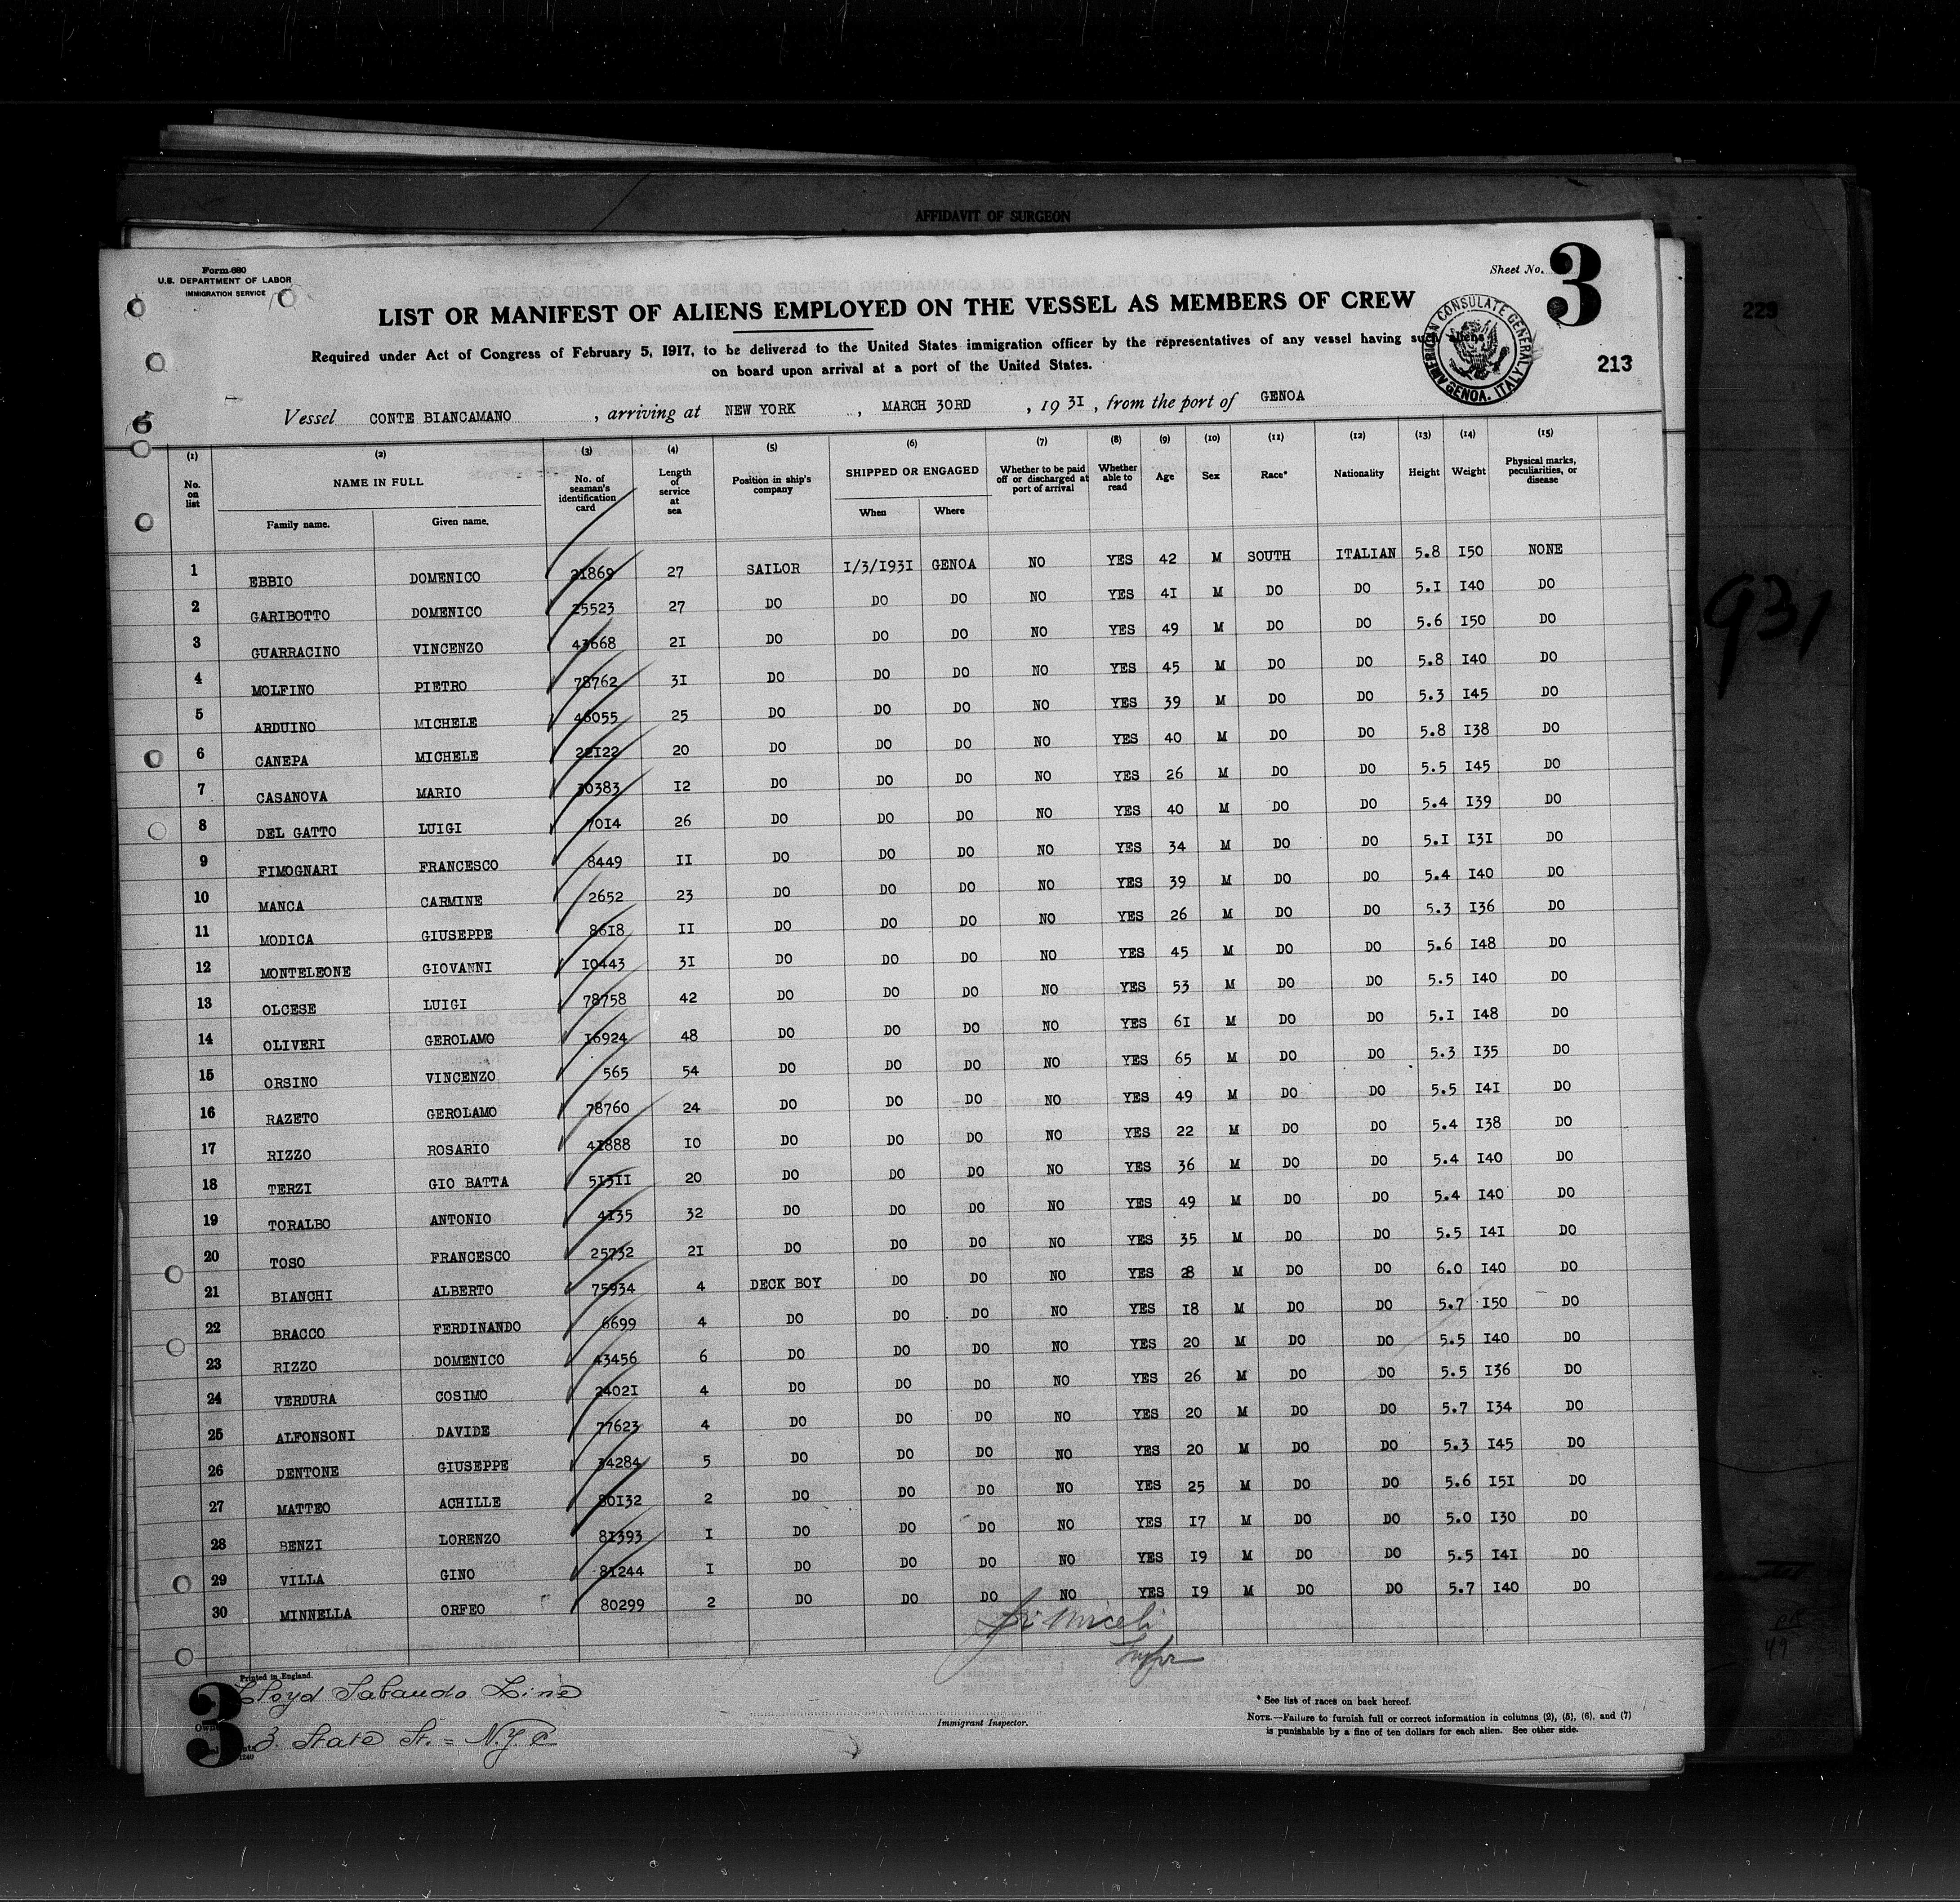 AFFIDAVIT OF SURGEON
Form 680
U.S. DEPARTMENT OF LABOR
IMMIGRATION SERVICE
Sheet No. 3
LIST OR MANIFEST OF ALIENS EMPLOYED ON THE VESSEL AS MEMBERS OF CREW
Required under Act of Congress of February 5, 1917, to be delivered to the United States immigration officer by the representatives of any vessel having such aliens
on board upon arrival at a port of the United States.
AMERICAN CONSULATE GENERAL
GENOA, ITALY
213
229
Vessel CONTE BIANCAMANO, arriving at NEW YORK, MARCH 30RD, 1931, from the port of GENOA
6
(1) (2) (3) (4) (5) (6) (7) (8) (9) (10) (11) (12) (13) (14) (15)
No. on list NAME IN FULL No. of seaman's identification card Length of service at sea Position in ship's company SHIPPED OR ENGAGED Whether to be paid off or discharged at port of arrival Whether able to read Age Sex Race* Nationality Height Weight Physical marks, peculiarities, or disease
Family name. Given name. When Where
1 EBBIO DOMENICO 21869 27 SAILOR 1/3/1931 GENOA NO YES 42 M SOUTH ITALIAN 5.8 150 NONE
2 GARIBOTTO DOMENICO 25523 27 DO DO DO NO YES 41 M DO DO 5.1 140 DO
3 GUARRACINO VINCENZO 43668 21 DO DO DO NO YES 49 M DO DO 5.6 150 DO
4 MOLFINO PIETRO 78762 31 DO DO DO NO YES 45 M DO DO 5.8 140 DO
5 ARDUINO MICHELE 46055 25 DO DO DO NO YES 39 M DO DO 5.3 145 DO
6 CANEPA MICHELE 22122 20 DO DO DO NO YES 40 M DO DO 5.8 138 DO
7 CASANOVA MARIO 30383 12 DO DO DO NO YES 26 M DO DO 5.5 145 DO
8 DEL GATTO LUIGI 7014 26 DO DO DO NO YES 40 M DO DO 5.4 139 DO
9 FIMOGNARI FRANCESCO 8449 11 DO DO DO NO YES 34 M DO DO 5.1 131 DO
10 MANCA CARMINE 2652 23 DO DO DO NO YES 39 M DO DO 5.4 140 DO
11 MODICA GIUSEPPE 8618 11 DO DO DO NO YES 26 M DO DO 5.3 136 DO
12 MONTELEONE GIOVANNI 10443 31 DO DO DO NO YES 45 M DO DO 5.6 148 DO
13 OLCESE LUIGI 78758 42 DO DO DO NO YES 53 M DO DO 5.5 140 DO
14 OLIVERI GEROLAMO 16924 48 DO DO DO NO YES 61 M DO DO 5.1 148 DO
15 ORSINO VINCENZO 565 54 DO DO DO NO YES 65 M DO DO 5.3 135 DO
16 RAZETO GEROLAMO 78760 24 DO DO DO NO YES 49 M DO DO 5.5 141 DO
17 RIZZO ROSARIO 41888 10 DO DO DO NO YES 22 M DO DO 5.4 138 DO
18 TERZI GIO BATTA 51311 20 DO DO DO NO YES 36 M DO DO 5.4 140 DO
19 TORALBO ANTONIO 4135 32 DO DO DO NO YES 49 M DO DO 5.4 140 DO
20 TOSO FRANCESCO 25732 21 DO DO DO NO YES 35 M DO DO 5.5 141 DO
21 BIANCHI ALBERTO 75934 4 DECK BOY DO DO NO YES 28 M DO DO 6.0 140 DO
22 BRACCO FERDINANDO 6699 4 DO DO DO NO YES 18 M DO DO 5.7 150 DO
23 RIZZO DOMENICO 43456 6 DO DO DO NO YES 20 M DO DO 5.5 140 DO
24 VERDURA COSIMO 24021 4 DO DO DO NO YES 26 M DO DO 5.5 136 DO
25 ALFONSONI DAVIDE 77623 4 DO DO DO NO YES 20 M DO DO 5.7 134 DO
26 DENTONE GIUSEPPE 34284 5 DO DO DO NO YES 20 M DO DO 5.3 145 DO
27 MATTEO ACHILLE 80132 2 DO DO DO NO YES 25 M DO DO 5.6 151 DO
28 BENZI LORENZO 81393 1 DO DO DO NO YES 17 M DO DO 5.0 130 DO
29 VILLA GINO 81244 1 DO DO DO NO YES 19 M DO DO 5.5 141 DO
30 MINNELLA ORFEO 80299 2 DO DO DO NO YES 19 M DO DO 5.7 140 DO
931
Printed in England.
3
Lloyd Sabaudo Line
3. State St. = N.Y.C
Immigrant Inspector.
* See list of races on back hereof.
NOTE.—Failure to furnish full or correct information in columns (2), (5), (6), and (7)
is punishable by a fine of ten dollars for each alien. See other side.